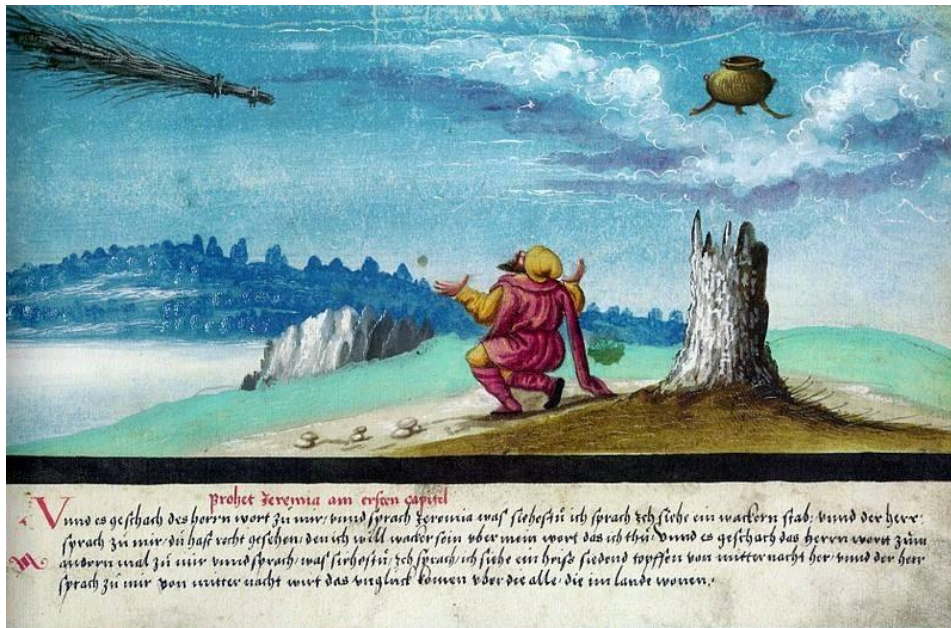 Prohet Jeremia am ersten Capitel
Vnnd es geschach des herrn wort zu mir, vnnd sprach Jeremia was siehestu, ich sprach ich siehe ein wackern stab, vnnd der herr
sprach zu mir, du hast recht gesehen, den ich will wacker sein vber mein wort das ich thu, Vnnd es geschach das herrn wortt zum
andern mal zu mir vnnd sprach, was siehestu, ich sprach, ich siehe ein heiss siedend topffen von mitternacht her, vnnd der herr
sprach zu mir von mitter nacht wirt das vnglück komen vber die alle, die im lande wonen,